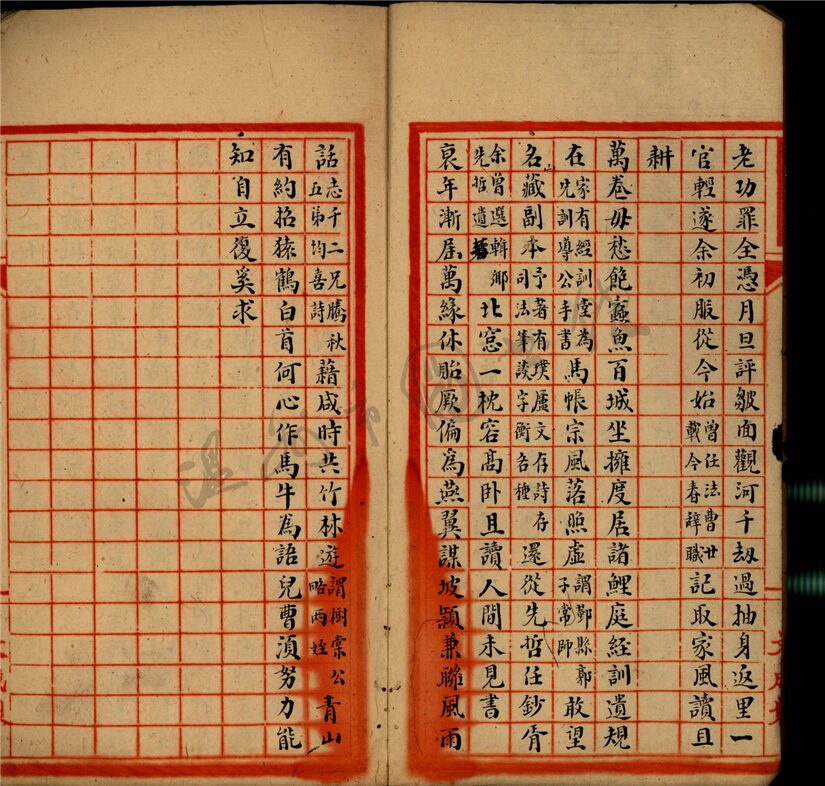 老功罪全憑月旦評皺面觀河千劫過抽身返里一
官輕遂余初服從今始曾任法曹廿載今春辭職記取家風讀且
耕
萬卷毋愁飽蠹魚百城坐擁度居諸鯉庭經訓遺規
在家有經訓堂為先訓導公手書馬帳宗風落照虛謂鄞縣郭子常師敢望
名藏副本予著有璞廬文存詩存司法筆談字衡各種還從先哲任鈔胥
余曾選輯鄉先哲遺著北窓一枕容高臥且讀人間未見書
衰年漸屆萬緣休貽厥偏為燕翼謀坡穎兼聯風雨
話志千二兄騰秋五弟均喜詩藉咸時共竹林遊謂樹棠公略兩姪青山
有約招猿鶴白首何心作馬牛為語兒曹須努力能
知自立復奚求